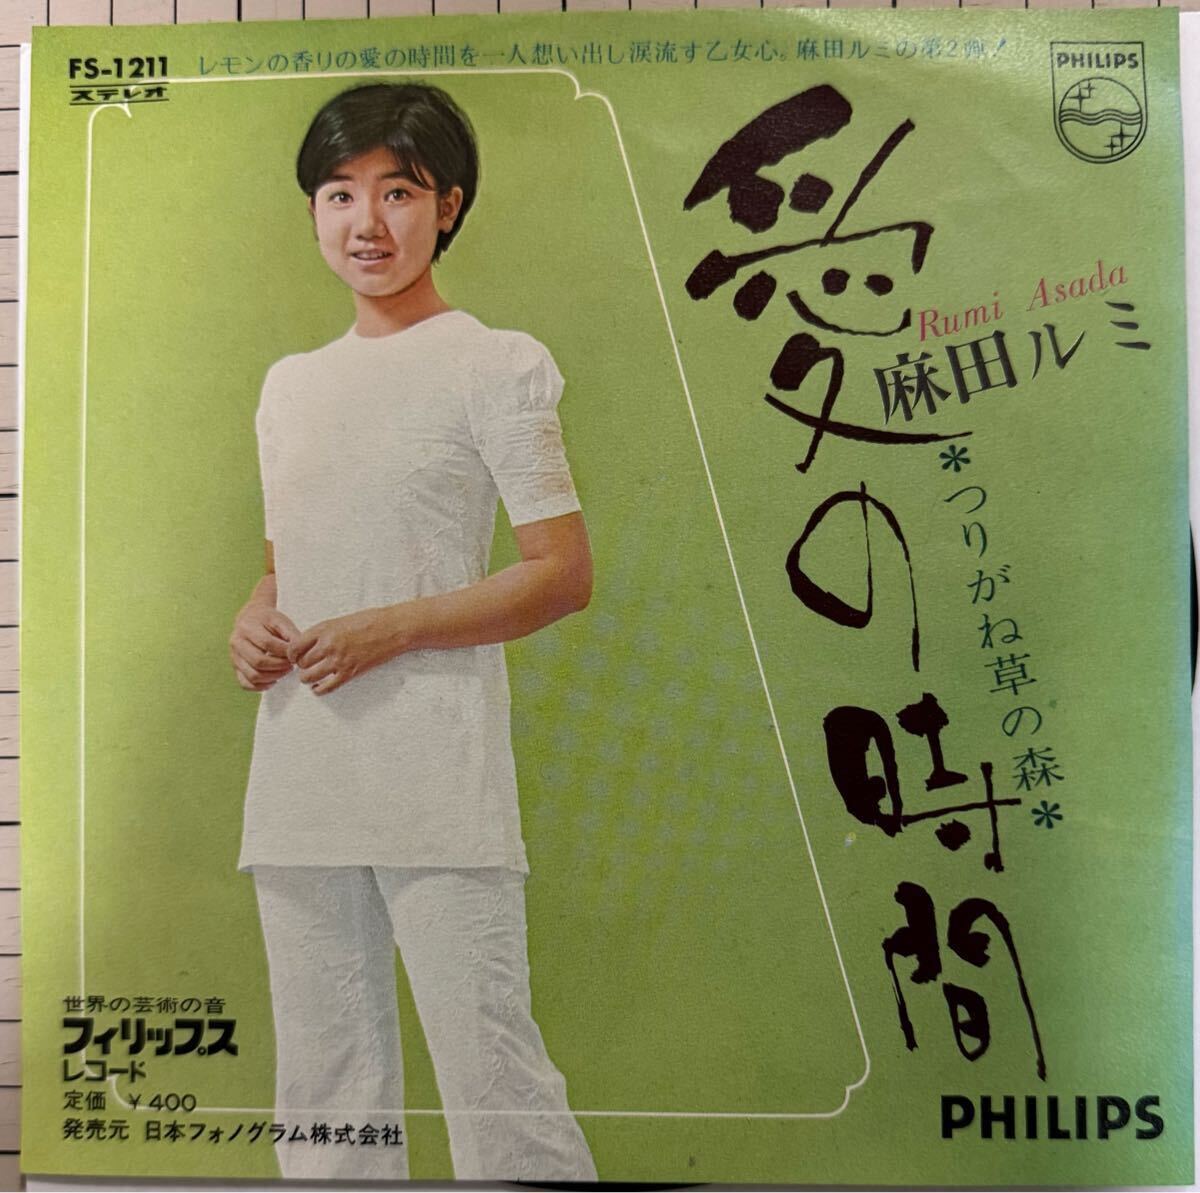 FS-1211
ステレオ
レモンの香りの愛の時間を一人想い出し涙流す乙女心。麻田ルミの第2弾!
PHILIPS
愛の時間
Rumi Asada
麻田ルミ
*つりがね草の森*
世界の芸術の音
フィリップス
レコード
定価 ¥400
発売元 日本フォノグラム株式会社
PHILIPS